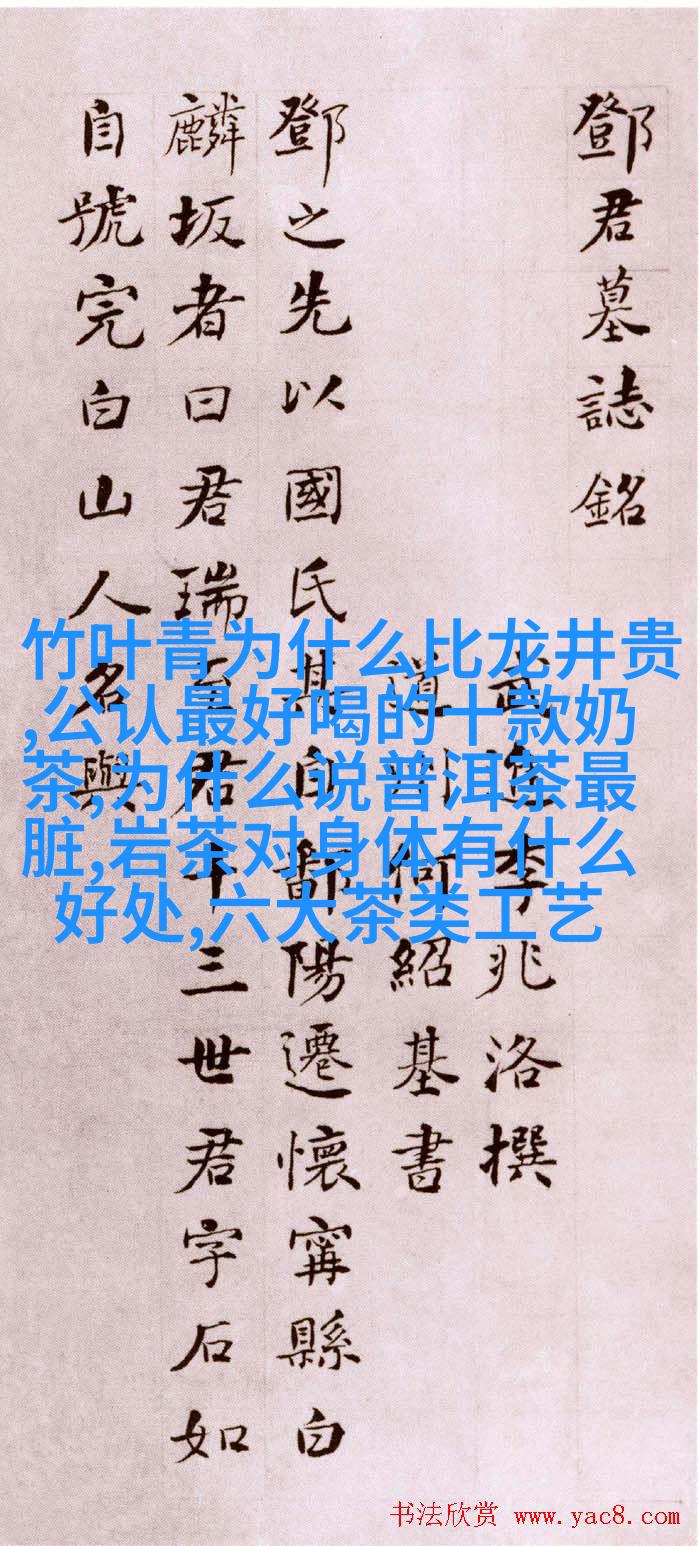 鄧君墓誌銘
武進李兆洛撰
道州何紹基書
鄧之先以國氏其自鄱陽遷懷甯縣白
麟坂者曰君瑞至君十三世君字石如
自號完白山人名與
竹叶青为什么比龙井贵
,公认最好喝的十款奶
茶,为什么说普洱茶最
脏,岩茶对身体有什么
好处,六大茶类工艺
书法欣赏 www.yac8.com